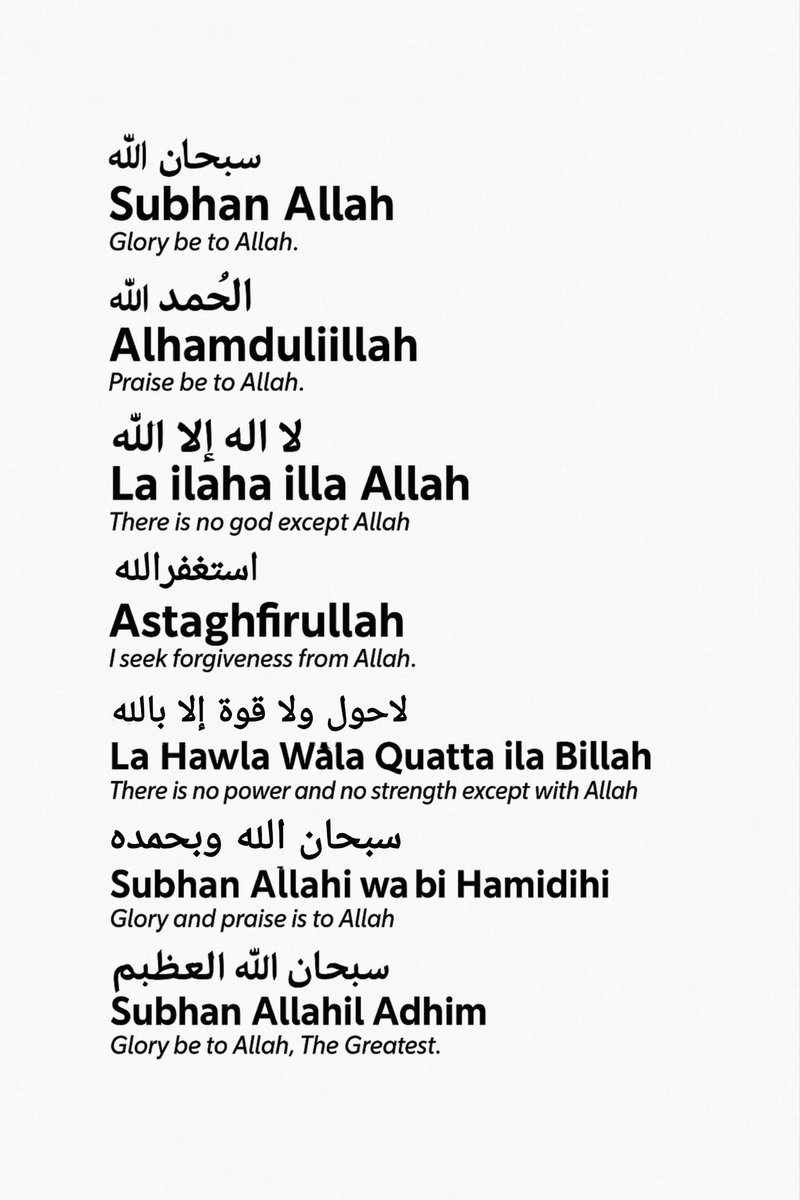 سبحان الله
Subhan Allah
Glory be to Allah.
الحُمد الله
Alhamduliillah
Praise be to Allah.
لا اله إلا الله
La ilaha illa Allah
There is no god except Allah
استغفرالله
Astaghfirullah
I seek forgiveness from Allah.
لاحول ولا قوة إلا بالله
La Hawla Wåla Quatta ila Billah
There is no power and no strength except with Allah
سبحان الله وبحمده
Subhan Allahi wa bi Hamidihi
Glory and praise is to Allah
سبحان الله العظبم
Subhan Allahil Adhim
Glory be to Allah, The Greatest.